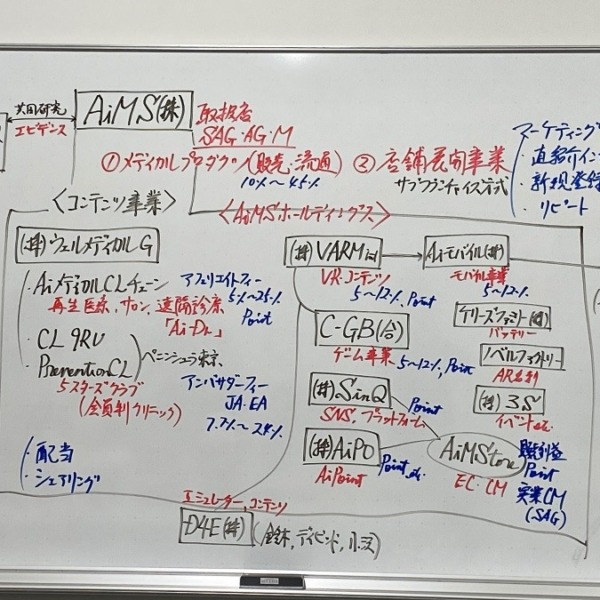 共同研究
エビデンス
AiMS(株)
取扱店
SAG・AG・M
①メディカルプロダクツ(販売・流通)
10%〜45%
②店舗展開事業
サブフランチャイズ方式
マーケティング
・直紹介イン
・新規登録
・リピート
<コンテンツ事業>
<AiMSホールディングス>
(株)ウェルメディカルG
・AiメディカルCLチェーン
再生医療、サロン、遠隔診療
「Ai-Dr」
アフェリエイトフィー
5%〜25%
Point
・CL 9RU
・PreventionCL
ペニンシュラ東京
5スターズクラブ
(会員制クリニック)
アンバサダーフィー
JA・EA
7.7%〜24%
・配当
・シェアリング
(株)VARMind
VR・コンテンツ
5〜12%、Point
Aiモバイル(株)
モバイル事業
5〜12%
C-GB(合)
ゲーム事業
5〜12%、Point
バッテリー
ノベルファクトリー
AR名刺
(株)SinQ
SNS、プラットフォーム
Point
(株)3S
イベント
(株)AiPO
AiPoint
Point
AiMStore
EC・CM
Point
実業CM
(SAG)
エミュレーター、コンテンツ
D4E(株)